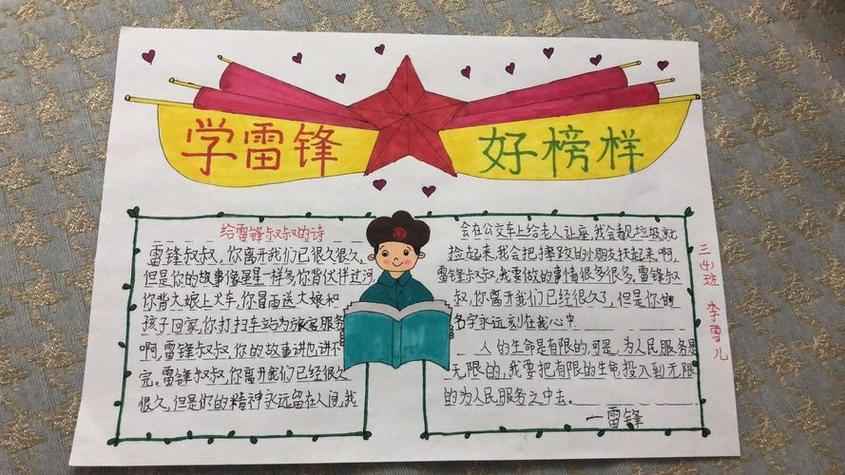 学雷锋
好榜样
给雷锋叔叔的诗
雷锋叔叔,你离开我们已很久很久,
但是你的故事像星星一样多,你背伙伴过河
你背大娘上火车,你冒雨送大娘和
孩子回家,你打扫车站为旅客服务
啊,雷锋叔叔,你的故事讲也讲不
完。雷锋叔叔,你离开我们已经很久
很久,但是你的精神永远留在人间,我
会在公交车上给老人让座,我会看见垃圾就
捡起来,我会把摔跤的小朋友扶起来啊,
雷锋叔叔,我要做的事情很多很多。雷锋叔
叔,你离开我们已经很久了,但是你的
名字永远刻在我心中
人的生命是有限的,可是,为人民服务是
无限的,我要把有限的生命投入到无限
的为人民服务之中去。
一雷锋
三(4)班 李雪儿